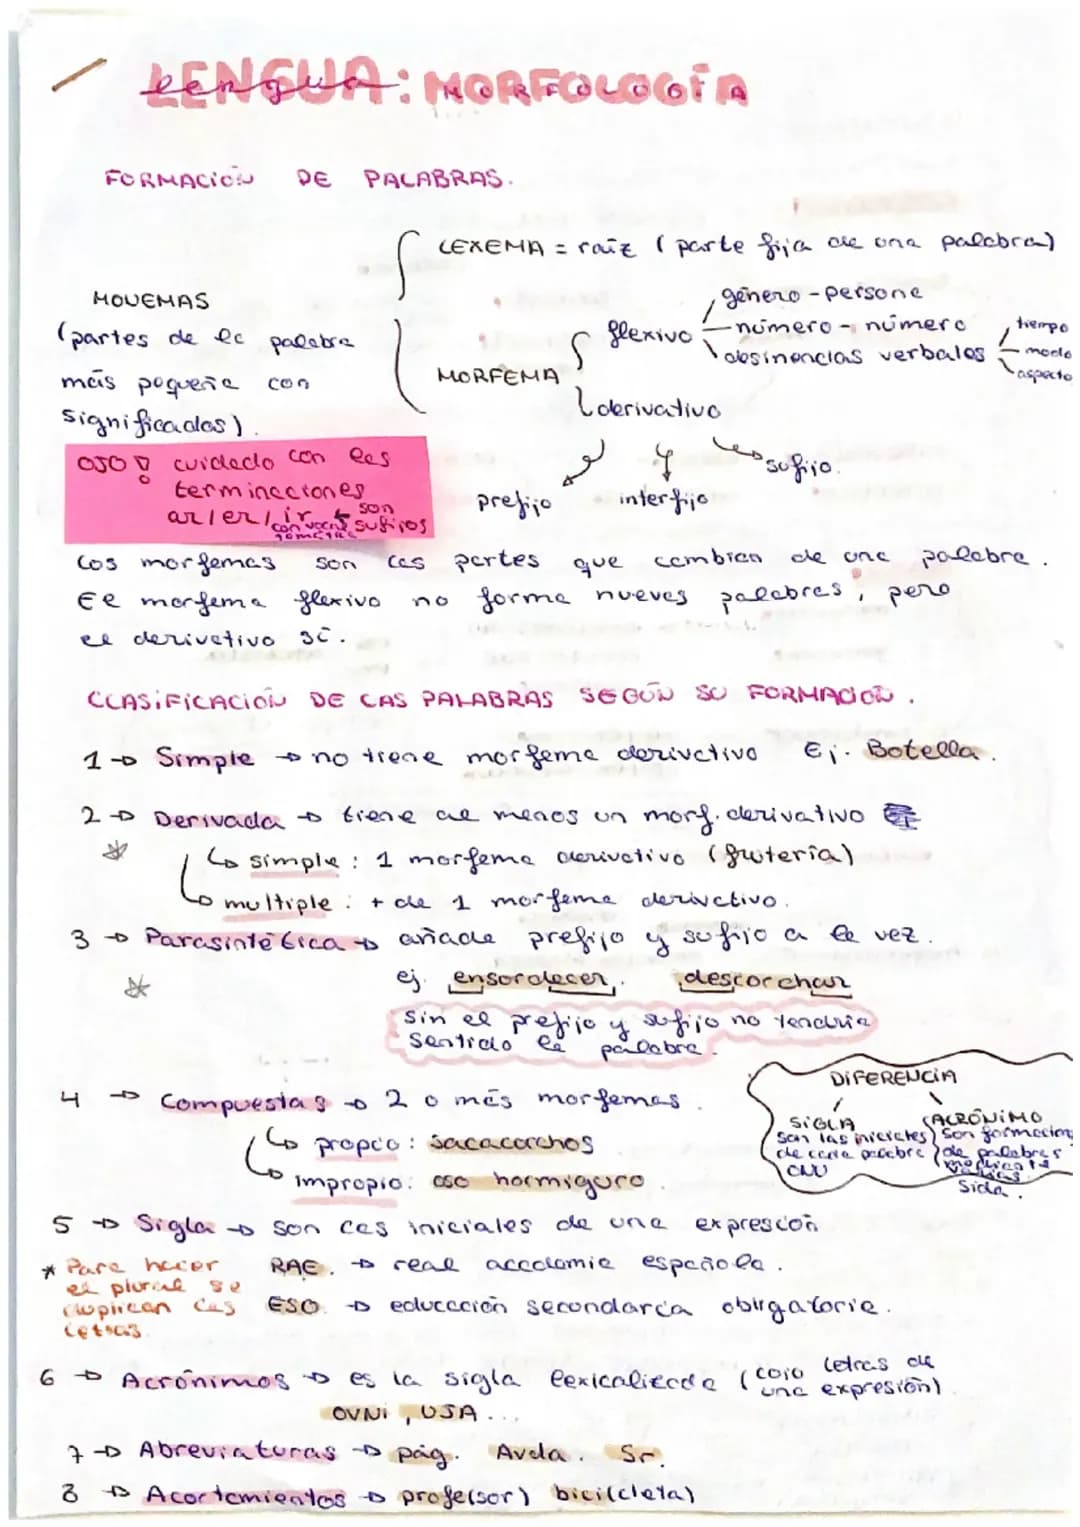 LENGUA: MORFOLOGÍA
FORMACIÓN DE PALABRAS.
MONEMAS
(partes de la palabra
más pequeña con
significados).
LEXEMA = raíz (parte fija de una palabra)
MORFEMA
flexivo
género - persona
número - número
desinencias verbales
tiempo
modo
aspecto
derivativo
prefijo
interfijo
sufijo.
OJO! cuidado con las
terminaciones
ar/er/ir son
con vocal sufijos
temática
Los morfemas son las partes que cambian de una palabra.
El morfema flexivo no forma nuevas palabras, pero
el derivativo sí.
CLASIFICACIÓN DE LAS PALABRAS SEGÚN SU FORMACIÓN.
1 → Simple → no tiene morfema derivativo Ej. Botella.
2 → Derivada → tiene al menos un morf. derivativo
* ↳ simple: 1 morfema derivativo (frutería)
↳ multiple: + de 1 morfema derivativo.
3 → Parasintética → añade prefijo y sufijo a la vez.
* ej. ensordecer, descorchar
Sin el prefijo y sufijo no tendría
sentido la palabra.
4 → Compuestas → 2 o más morfemas.
↳ propio: sacacorchos
↳ impropio: oso hormiguero.
DIFERENCIA
SIGLA
Son las iniciales
de cada palabra
ONU
ACRÓNIMO
Son formación
de palabras
Sida.
5 → Sigla → son las iniciales de una expresión
RAE. → real academia española.
ESO → educación secundaria obligatoria.
* Para hacer
el plural se
duplican las
letras.
6 → Acrónimos → es la sigla lexicalizada (cojo letras de
una expresión)
OVNI, USA...
7 → Abreviaturas → pág. Avda. Sr.
8 → Acortamientos → profe(sor) bici(cleta)